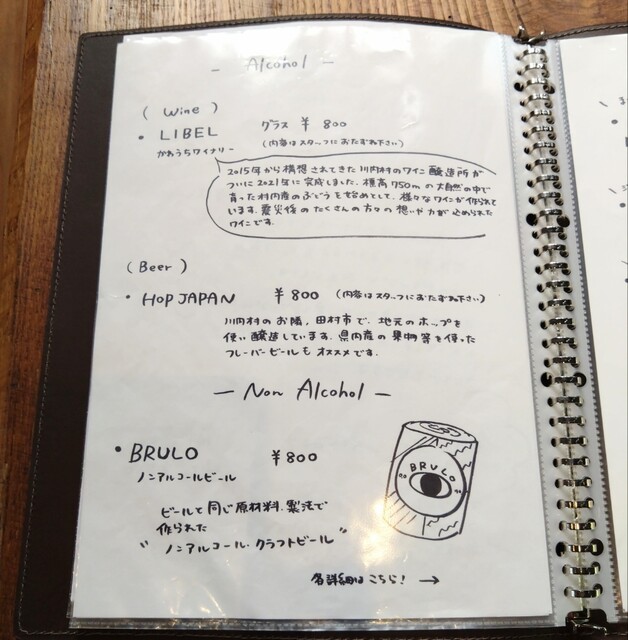 — Alcohol —
( Wine )
・ LIBEL グラス ¥ 800
かわうちワイナリー (内容はスタッフにおたずね下さい)
2015年から構想されてきた川内村のワイン醸造所が
ついに2021年に完成しました。標高750mの大自然の中で
育った村内産のぶどうを始めとして、様々なワインが作られて
います。震災後のたくさんの方々の想いや力が込められた
ワインです。
(Beer)
・ HOP JAPAN ¥ 800 (内容はスタッフにおたずね下さい)
川内村のお隣、田村市で、地元のホップを
使い醸造しています。県内産の果物等を使った
フレーバービールもオススメです。
— Non Alcohol —
・BRULO ¥800
ノンアルコールビール
BRULO
ビールと同じ原材料、製法で
作られた
"ノンアルコール・クラフトビール"
各詳細はこちら! →